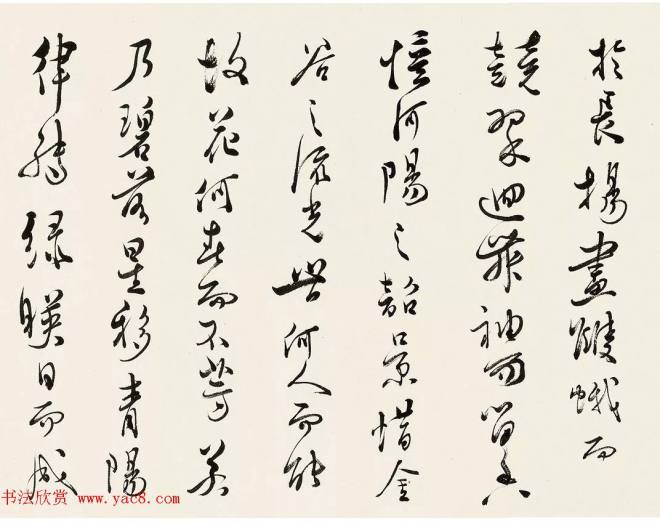 於長楊畫雙蛾而
競翠迴舞袖而留香
憶河陽之韶景惜金
谷之流光昔何人而能
故花何春而不芳若
乃碧落星移青陽
律轉綠暎日而成
书法欣赏 www.yac8.com